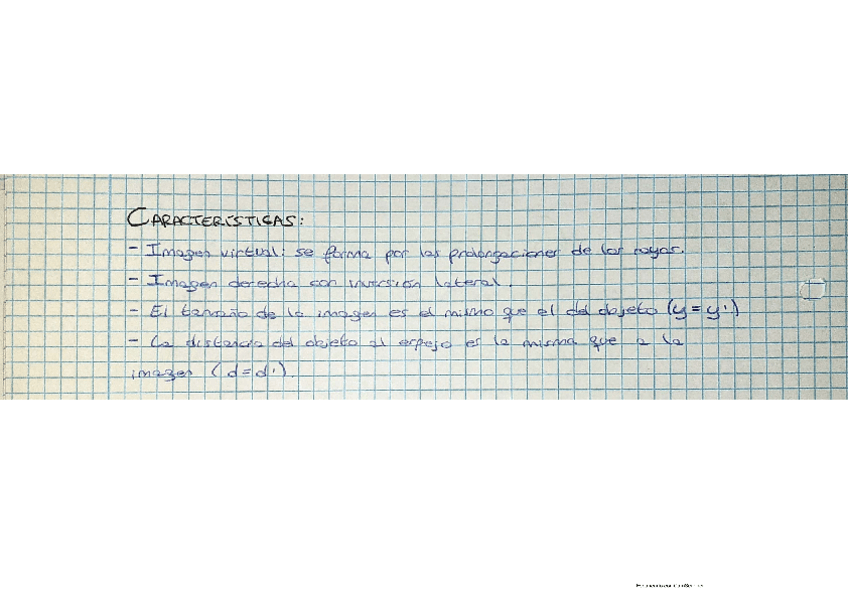 CARACTERÍSTICAS:
- Imagen virtual: se forma por las prolongaciones de los rayos.
- Imagen derecha con inversión lateral.
- El tamaño de la imagen es el mismo que el del objeto (y = y')
- La distancia del objeto al espejo es la misma que a la
imagen (d = d').